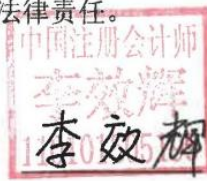 法律责任。
中国注册会计师
李效辉
李效辉